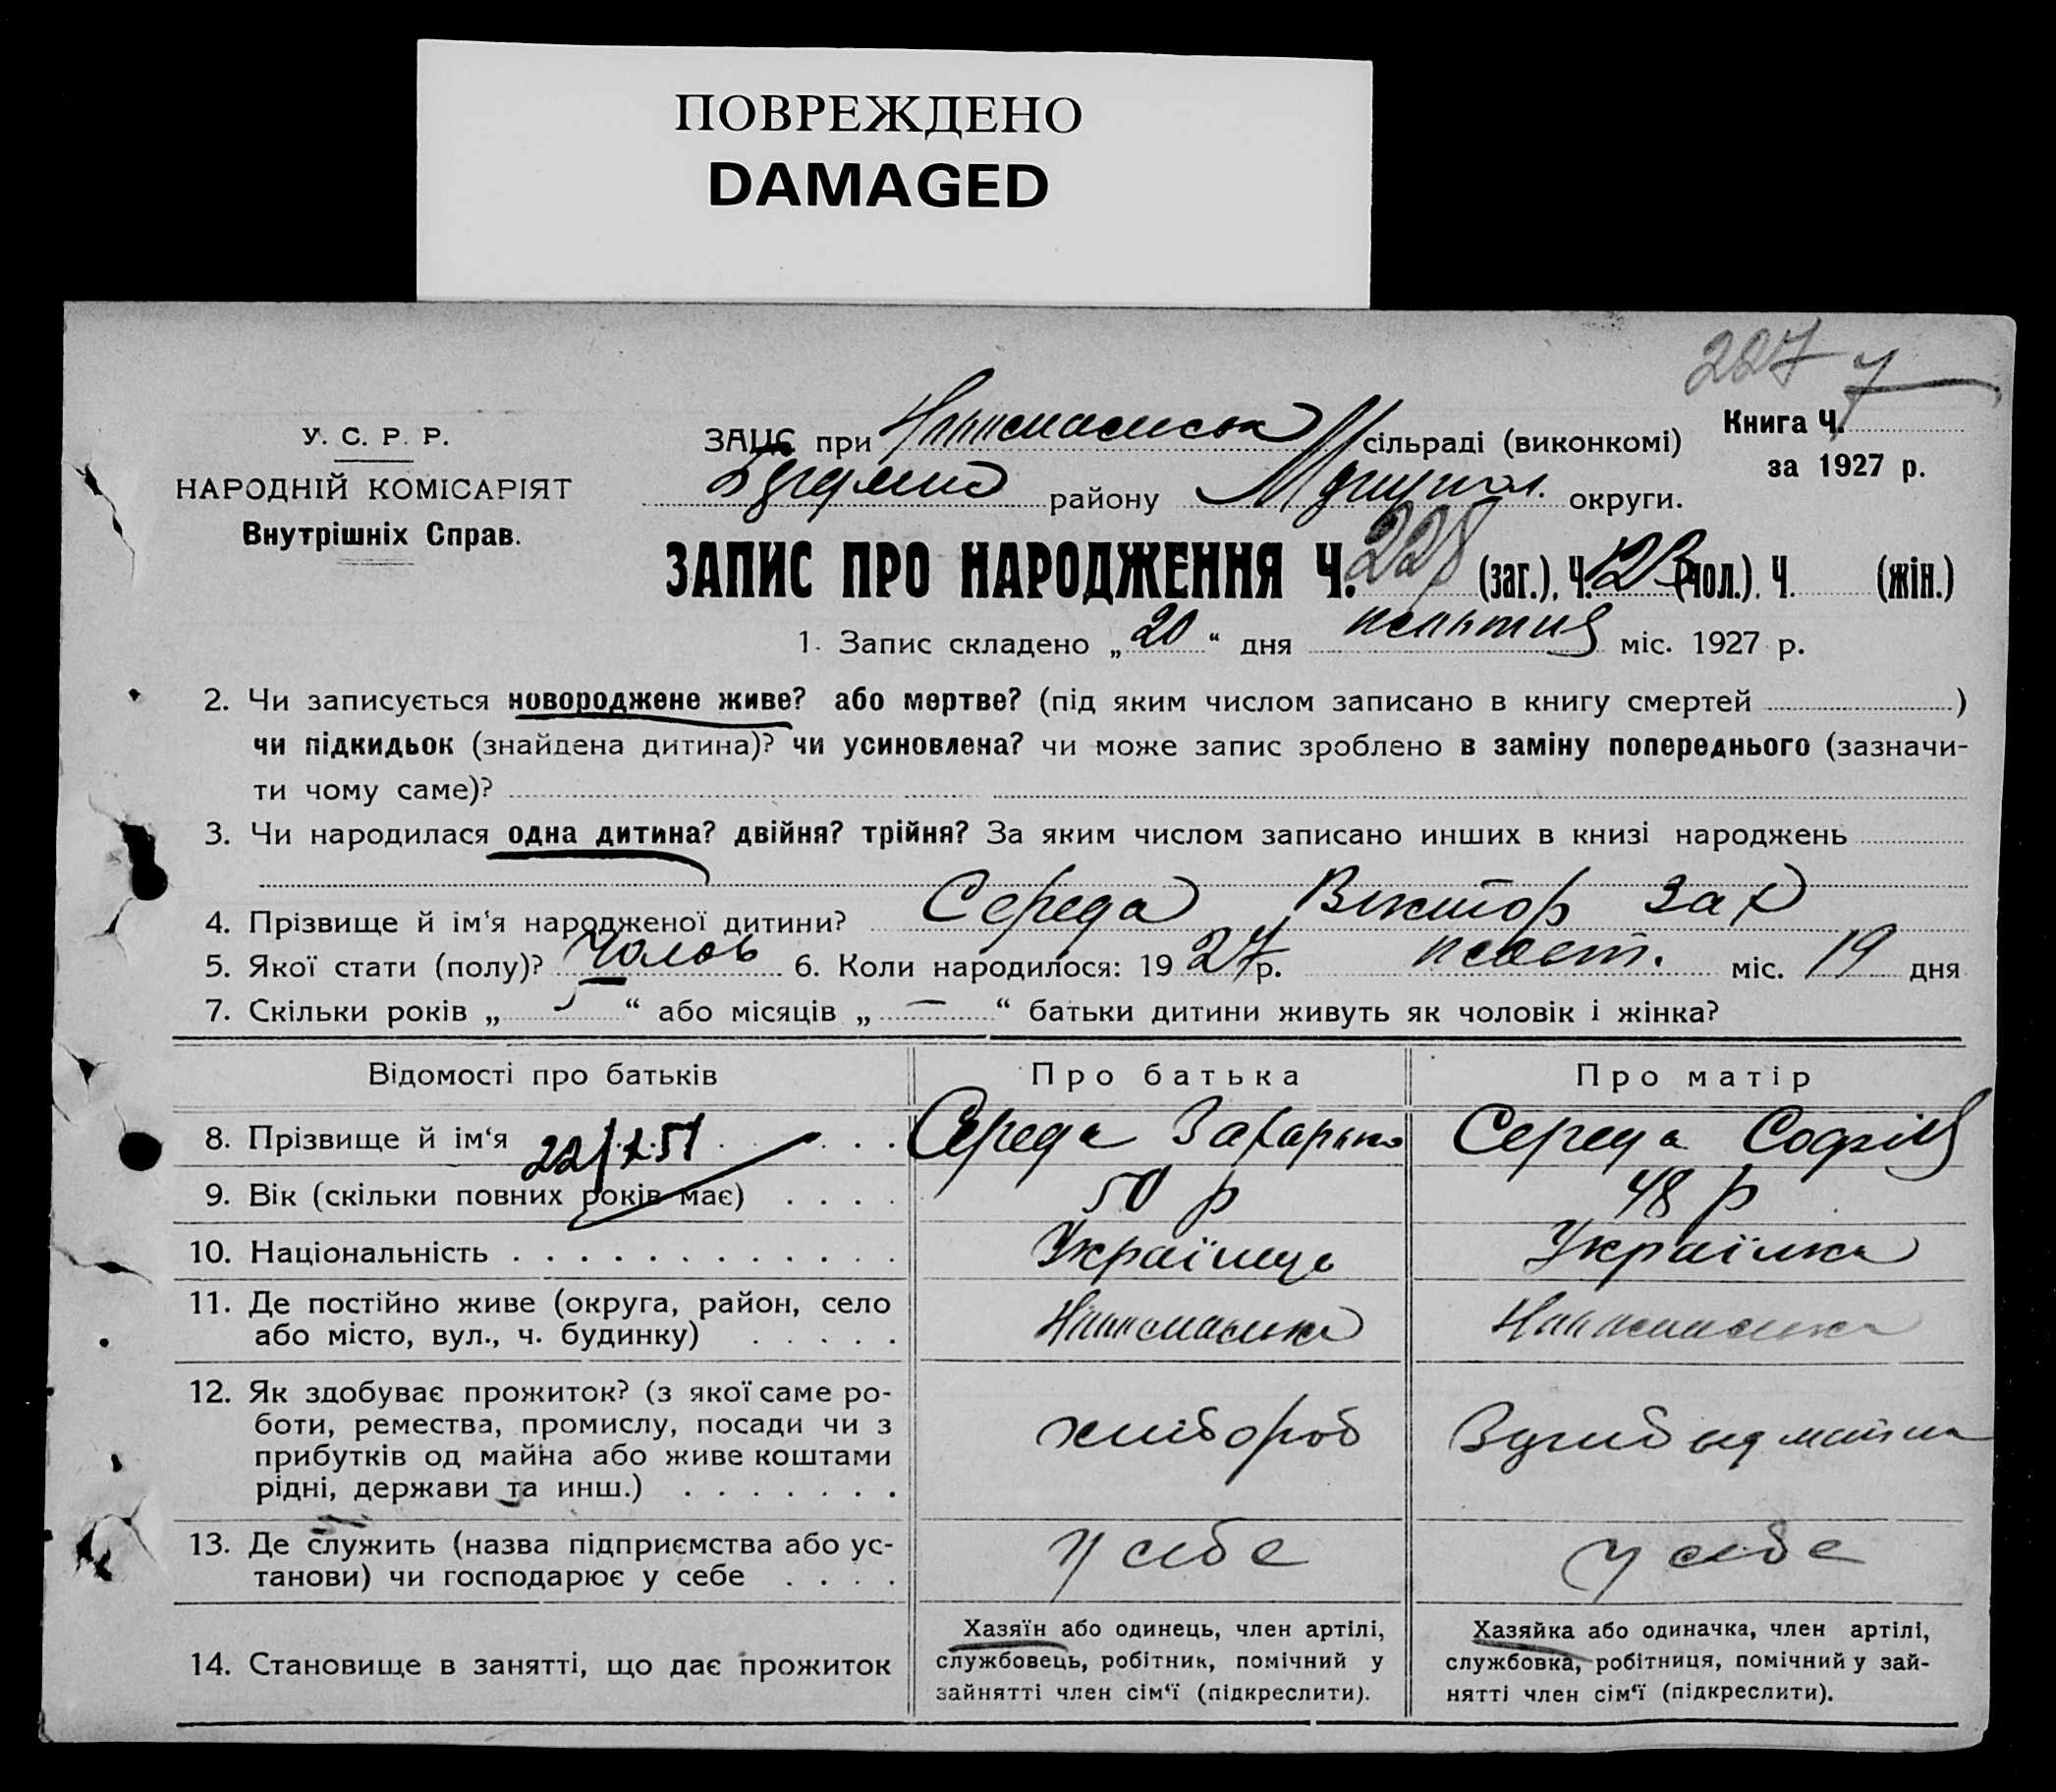 ПОВРЕЖДЕНО
DAMAGED
227 7
У. С. Р. Р.
НАРОДНІЙ КОМІСАРІЯТ
Внутрішніх Справ.
ЗАЦС при сільраді (виконкомі)
району Маріупол. округи.
Книга Ч.
за 1927 р.
ЗАПИС ПРО НАРОДЖЕННЯ Ч. 228 (заг.), Ч. 123 (чол.). Ч. (жін.)
1. Запис складено „ 20 “ дня міс. 1927 р.
2. Чи записується новороджене живе? або мертве? (під яким числом записано в книгу смертей )
чи підкидьок (знайдена дитина)? чи усиновлена? чи може запис зроблено в заміну попереднього (зазначи-
ти чому саме)?
3. Чи народилася одна дитина? двійня? трійня? За яким числом записано инших в книзі народжень
4. Прізвище й ім‘я народженої дитини? Середа Віктор Зах
5. Якої стати (полу)? Чолов 6. Коли народилося: 19 27 р. міс. 19 дня
7. Скільки років „ 5 “ або місяців „ — “ батьки дитини живуть як чоловік і жінка?
Відомості про батьків Про батька Про матір
8. Прізвище й ім‘я Середа Захарько Середа Софія
9. Вік (скільки повних років має) 50 р 48 р
10. Національність Українець Українка
11. Де постійно живе (округа, район, село
або місто, вул., ч. будинку)
12. Як здобуває прожиток? (з якої саме ро-
боти, ремества, промислу, посади чи з
прибутків од майна або живе коштами
рідні, держави та инш.) хлібороб
13. Де служить (назва підприємства або ус-
танови) чи господарює у себе у себе у себе
14. Становище в занятті, що дає прожиток
Хазяїн або одинець, член артілі,
службовець, робітник, помічний у
зайнятті член сім‘ї (підкреслити).
Хазяйка або одиначка, член артілі,
службовка, робітниця, помічний у зай-
нятті член сім‘ї (підкреслити).